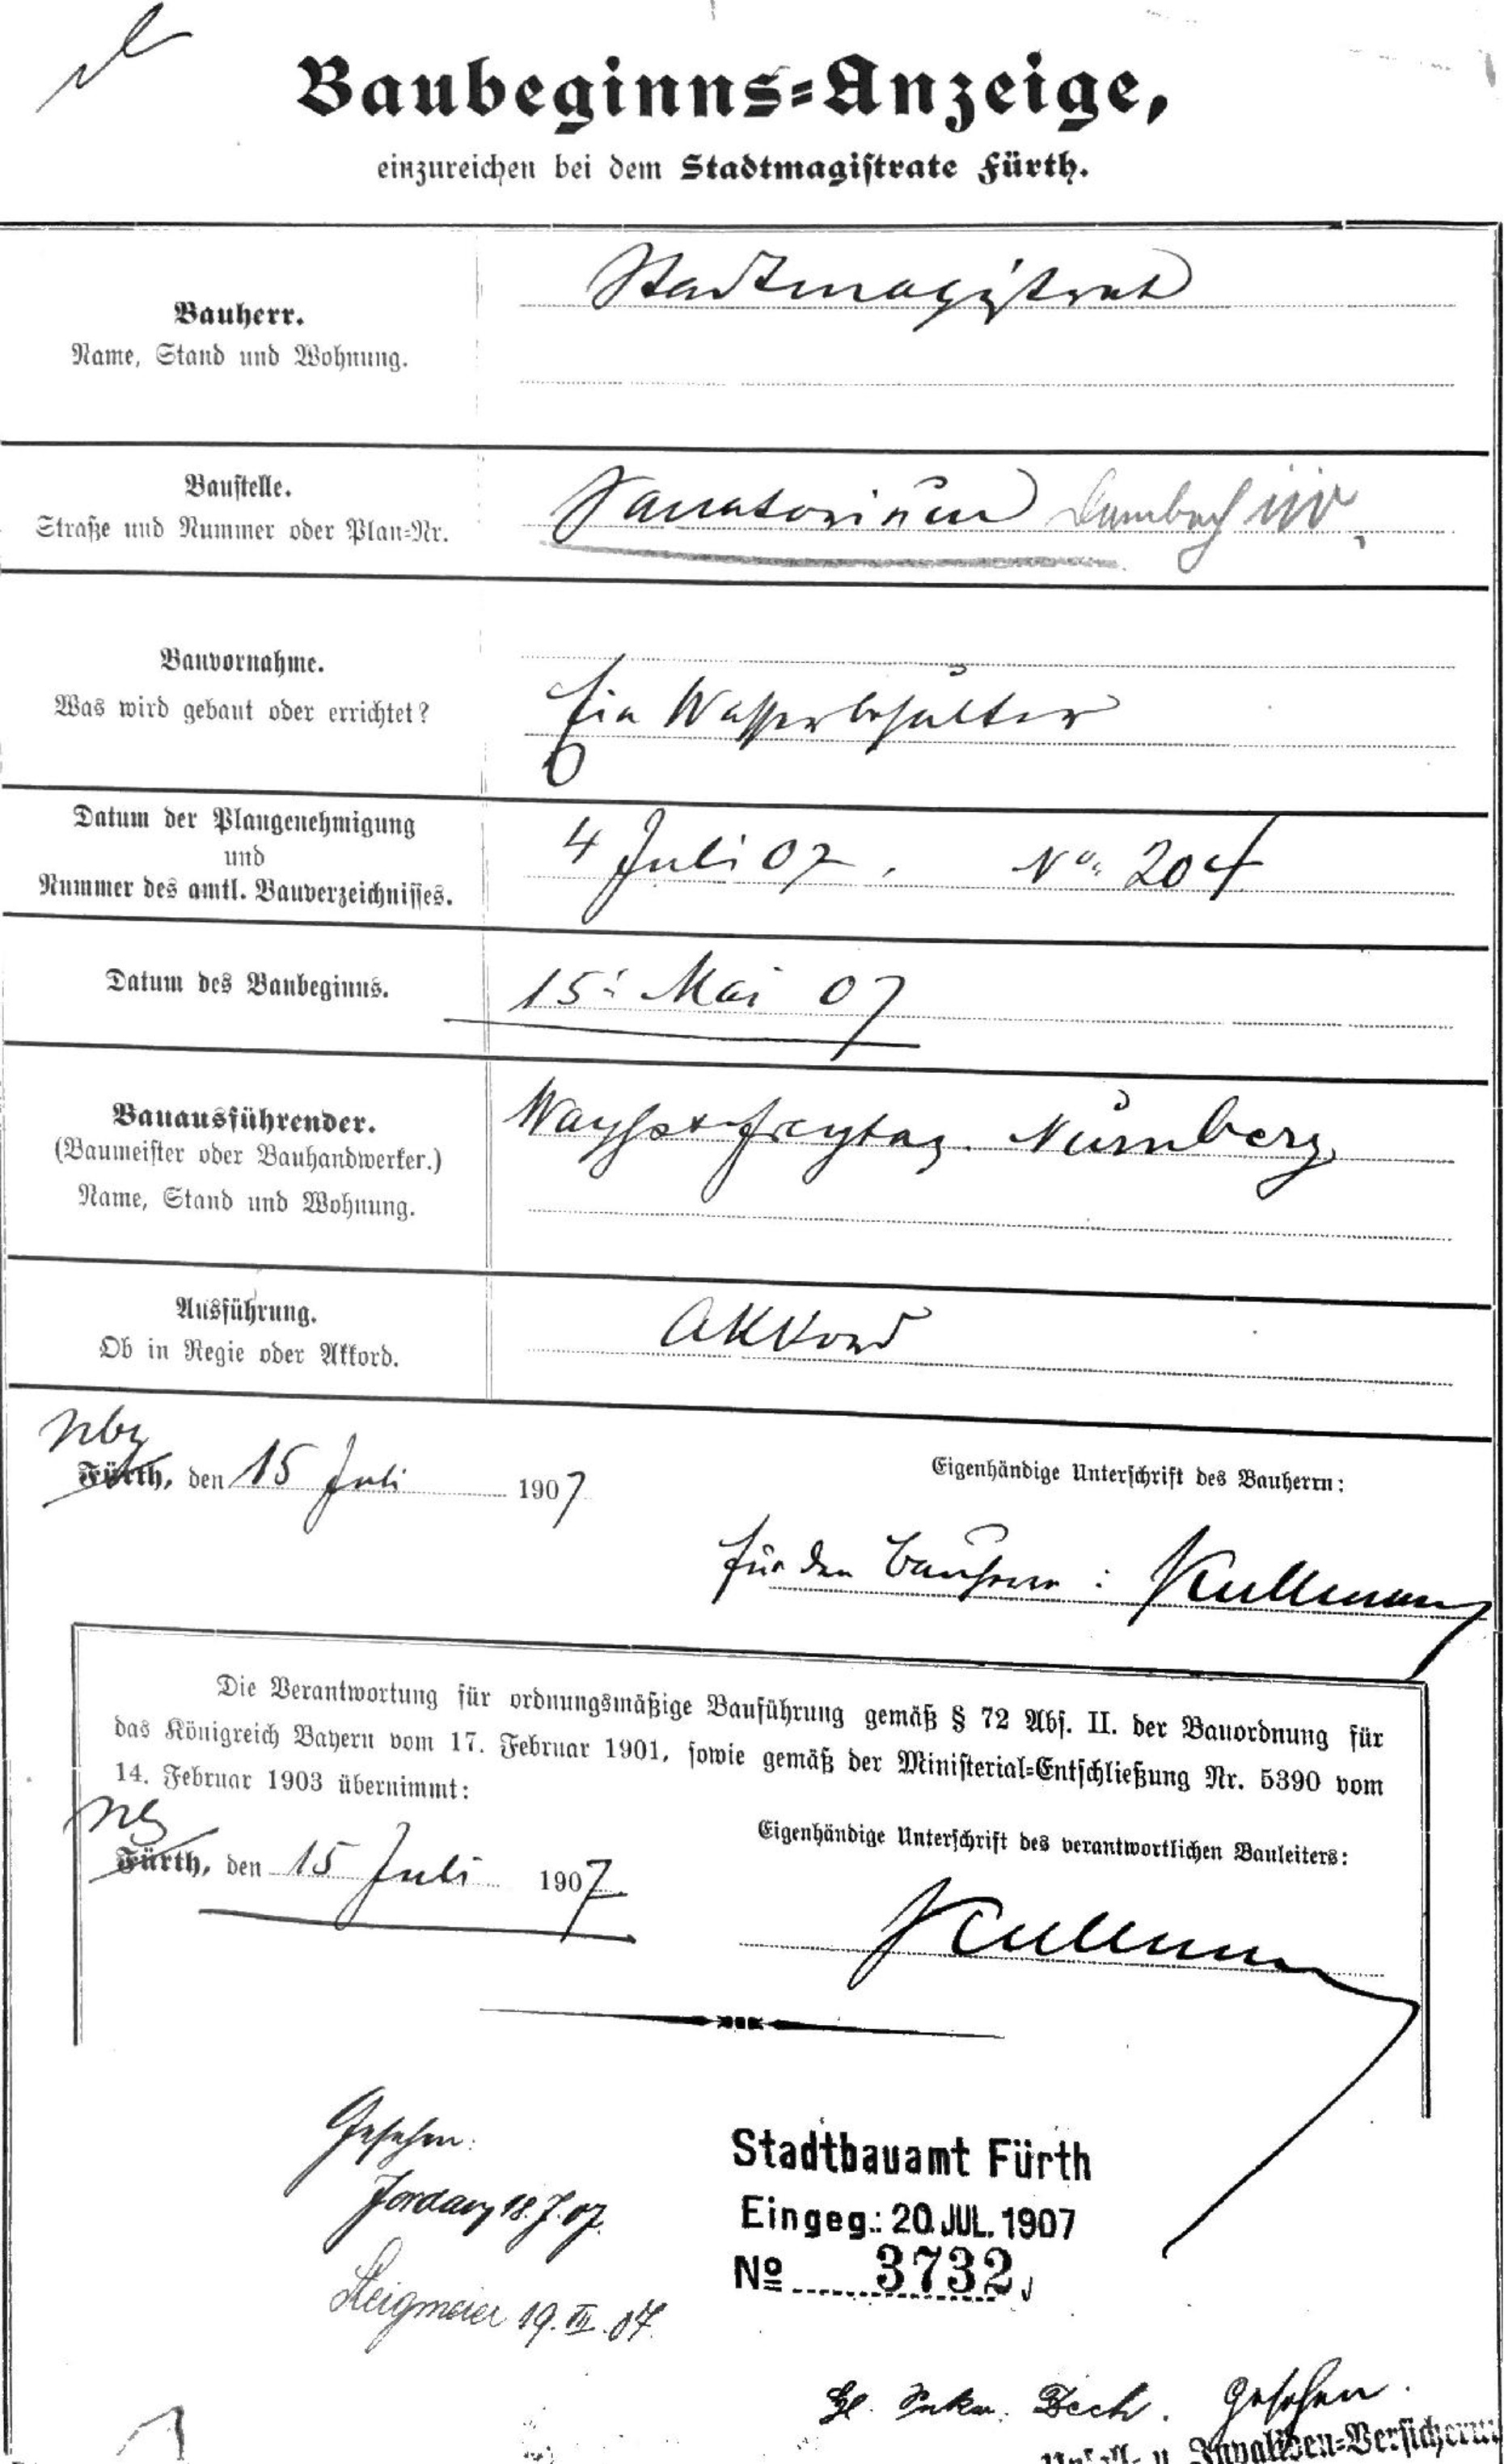 Baubeginns-Anzeige,
einzureichen bei dem Stadtmagistrate Fürth.
Bauherr.
Name, Stand und Wohnung.
Stadtmagistrat
Baustelle.
Straße und Nummer oder Plan-Nr.
Sanatorium Dambach
Bauvornahme.
Was wird gebaut oder errichtet?
Ein Wasserbehälter
Datum der Plangenehmigung
und
Nummer des amtl. Bauverzeichnisses.
4 Juli 07. No. 204
Datum des Baubeginns.
15. Mai 07
Bauausführender.
(Baumeister oder Bauhandwerker.)
Name, Stand und Wohnung.
Wayss & Freytag. Nürnberg.
Ausführung.
Ob in Regie oder Akkord.
Akkord
Nbg
Fürth, den 15 Juli 1907
Eigenhändige Unterschrift des Bauherrn:
für den Bauherrn: Kullmann
Die Verantwortung für ordnungsmäßige Bauführung gemäß § 72 Abs. II. der Bauordnung für
das Königreich Bayern vom 17. Februar 1901, sowie gemäß der Ministerial-Entschließung Nr. 5390 vom
14. Februar 1903 übernimmt:
Nbg
Fürth, den 15 Juli 1907
Eigenhändige Unterschrift des verantwortlichen Bauleiters:
Kullmann
Gesehen:
Jordan 18.7.07.
Steigmeier 19.VII.07.
Stadtbauamt Fürth
Eingeg.: 20. JUL. 1907
Nº 3732
Gesehen.
Invaliden-Versicherun